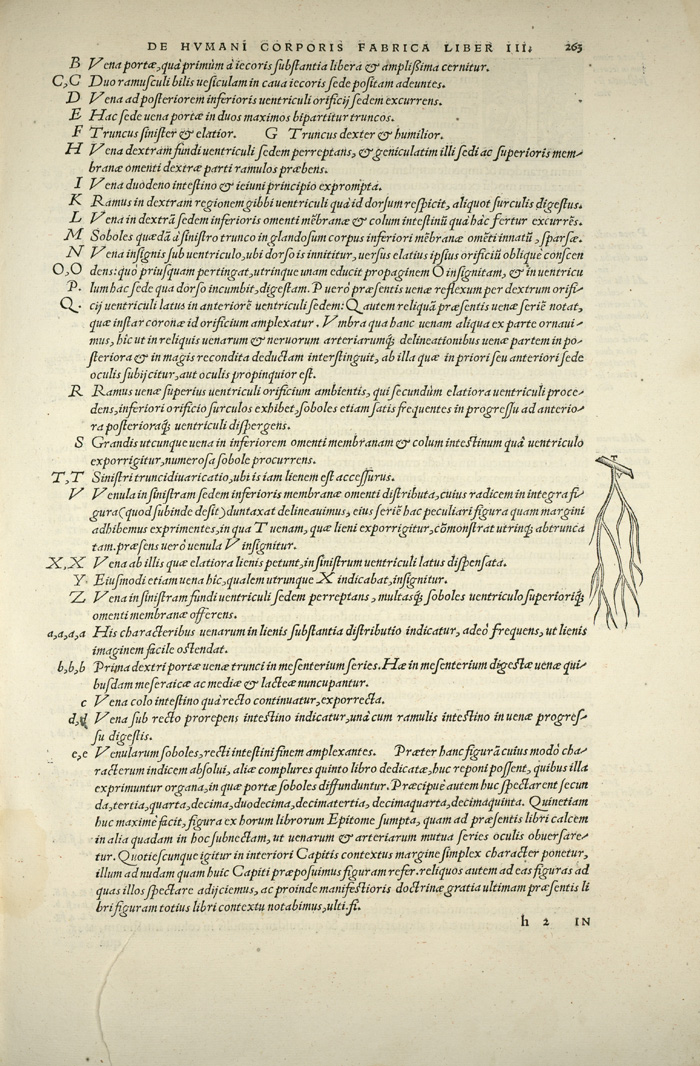 DE HVMANI CORPORIS FABRICA LIBER III. 265
B Vena portæ, quà primùm à iecoris substantia libera & amplißima cernitur.
C,C Duo ramusculi bilis uesiculam in caua iecoris sede positam adeuntes.
D Vena ad posteriorem inferioris uentriculi orificij sedem excurrens.
E Hac sede uena portæ in duos maximos bipartitur truncos.
F Truncus sinister & elatior. G Truncus dexter & humilior.
H Vena dextram fundi uentriculi sedem perreptans, & geniculatim illi sedi ac superioris mem-
branæ omenti dextræ parti ramulos præbens.
I Vena duodeno intestino & ieiuni principio exprompta.
K Ramus in dextram regionem gibbi uentriculi quà id dorsum respicit, aliquot surculis digestus.
L Vena in dextrã sedem inferioris omenti mẽbranæ & colum intestinũ quà hâc fertur excurrẽs.
M Soboles quædã à sinistro trunco in glandosum corpus inferiori mẽbranæ omẽti innatũ, sparsæ.
N Vena insignis sub uentriculo, ubi dorso is innititur, uersus elatius ipsius orificiũ obliquè conscen
O,O dens: quò priusquam pertingat, utrinque unam educit propaginem O insignitam, & in uentricu
P. lum hac sede qua dorso incumbit, digestam. P uerò præsentis uenæ reflexum per dextrum orifi-
Q. cij uentriculi latus in anteriorẽ uentriculi sedem: Q autem reliquã præsentis uenæ seriẽ notat,
quæ instar coronæ id orificium amplexatur. Vmbra qua hanc uenam aliqua ex parte ornaui-
mus, hîc ut in reliquis uenarum & neruorum arteriarumq́; delineationibus uenæ partem in po-
steriora & in magis recondita deductam interstinguit, ab illa quæ in priori seu anteriori sede
oculis subijcitur, aut oculis propinquior est.
R Ramus uenæ superius uentriculi orificium ambientis, qui secundùm elatiora uentriculi proce-
dens, inferiori orificio surculos exhibet, soboles etiam satis frequentes in progressu ad anterio-
ra posterioraq́; uentriculi dispergens.
S Grandis utcunque uena in inferiorem omenti membranam & colum intestinum quà uentriculo
exporrigitur, numerosa sobole procurrens.
T,T Sinistri trunci diuaricatio, ubi is iam lienem est accessurus.
V Venula in sinistram sedem inferioris membranæ omenti distributa, cuius radicem in integra fi-
gura (quod subinde desit) duntaxat delineauimus, eius seriẽ hac peculiari figura quam margini
adhibemus exprimentes, in qua T uenam, quæ lieni exporrigitur, cõmonstrat utrinq́; abtrunca
tam. præsens uerò uenula V insignitur.
X,X Vena ab illis quæ elatiora lienis petunt, in sinistrum uentriculi latus dispensata.
Y Eiusmodi etiam uena hîc, qualem utrunque X indicabat, insignitur.
Z Vena in sinistram fundi uentriculi sedem perreptans, multasq́; soboles uentriculo superioriq́;
omenti membranæ offerens.
a,a,a,a His characteribus uenarum in lienis substantia distributio indicatur, adeò frequens, ut lienis
imaginem facile ostendat.
b,b,b Prima dextri portæ uenæ trunci in mesenterium series. Hæ in mesenterium digestæ uenæ qui-
busdam meseraicæ ac mediæ & lacteæ nuncupantur.
c Vena colo intestino quà recto continuatur, exporrecta.
d,d Vena sub recto prorepens intestino indicatur, unà cum ramulis intestino in uenæ progres-
su digestis.
e,e Venularum soboles, recti intestini finem amplexantes. Præter hanc figurã cuius modò cha-
racterum indicem absolui, aliæ complures quinto libro dedicatæ, huc reponi possent, quibus illa
exprimuntur organa, in quæ portæ soboles diffunduntur. Præcipuè autem huc spectarent secun
da, tertia, quarta, decima, duodecima, decimatertia, decimaquarta, decimaquinta. Quinetiam
huc maximè facit, figura ex horum librorum Epitome sumpta, quam ad præsentis libri calcem
in alia quadam in hoc subnectam, ut uenarum & arteriarum mutua series oculis obuersare-
tur. Quotiescunque igitur in interiori Capitis contextus margine simplex character ponetur,
illum ad nudam quam huic Capiti præposuimus figuram refer. reliquos autem ad eas figuras ad
quas illos spectare adijciemus, ac proinde manifestioris doctrinæ gratia ultimam præsentis li
bri figuram totius libri contextu notabimus, ulti.fi.
h 2 IN